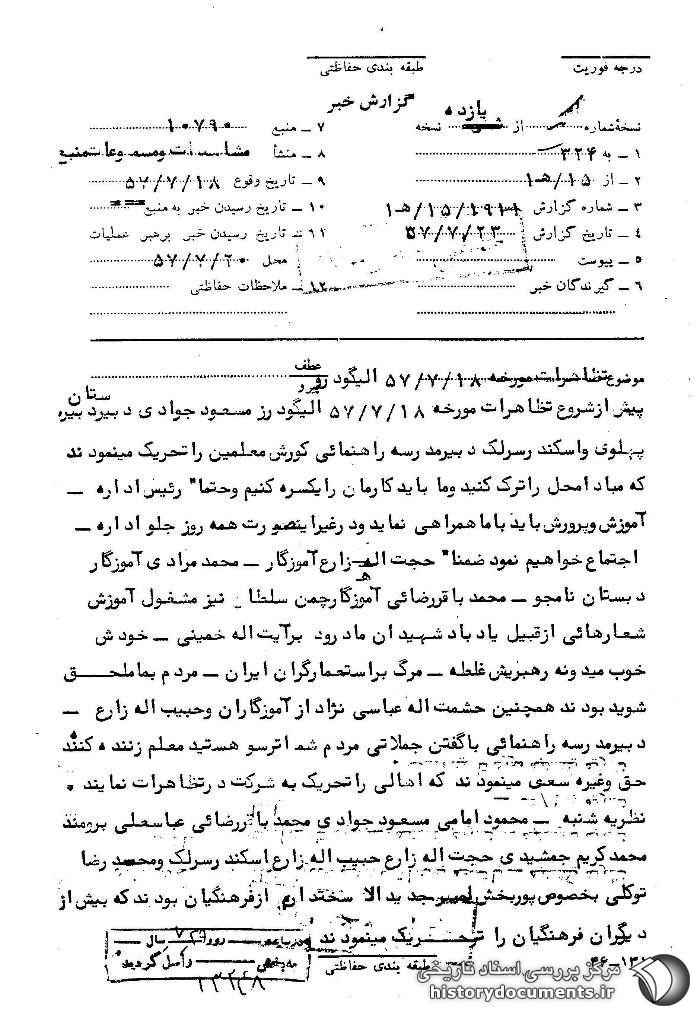 درجه فوریت
طبقه بندی حفاظتی
گزارش خبر
نسخهٔ شماره از نسخه
یازده
۱ ـ به ۳۲۴
۲ ـ از ۱۵/هـ۱
۳ ـ شماره گزارش ۱۹۱۱/۱۵/هـ۱
۴ ـ تاریخ گزارش ۵۷/۷/۲۳
۵ ـ پیوست
۶ ـ گیرندگان خبر
۷ ـ منبع ۱۰۷۹۰
۸ ـ منشأ مشاهدات و مسموعات منبع
۹ ـ تاریخ وقوع ۵۷/۷/۱۸
۱۰ ـ تاریخ رسیدن خبر به منبع
۱۱ ـ تاریخ رسیدن خبر برهبر عملیات
محل ۵۷/۷/۲۰
۱۲ ـ ملاحظات حفاظتی
موضوع تظاهرات مورخه ۵۷/۷/۱۸ الیگودرز
عطف
پیرو
پیش از شروع تظاهرات مورخه ۵۷/۷/۱۸ الیگودرز مسعود جوادی دبیر دبیرستان
پهلوی و اسکندر سرلک دبیر مدرسه راهنمائی کورش معلمین را تحریک مینمودند
که مبادا محل را ترک کنید و ما باید کارمان را یکسره کنیم و حتما" رئیس اداره ـ
آموزش و پرورش باید با ما همراهی نماید و در غیر اینصورت همه روز جلو اداره ـ
اجتماع خواهیم نمود ضمنا" حجت اله زارع آموزگار ـ محمد مرادی آموزگار
دبستان نامجو ـ محمد باقر رضائی آموزگار چمن سلطان نیز مشغول آموزش
شعارهائی از قبیل یاد باد شهیدان ما درود بر آیت اله خمینی ـ خودش
خوب میدونه رهبریش غلطه ـ مرگ بر استعمارگران ایران ـ مردم بما ملحق
شوید بودند همچنین حشمت اله عباسی نژاد از آموزگاران و حبیب اله زارع ـ
دبیر مدرسه راهنمائی با گفتن جملاتی مردم شما ترسو هستید معلم زنده کننده
حق و غیره سعی مینمودند که اهالی را تحریک به شرکت در تظاهرات نمایند .
نظریه شنبه ـ محمود امامی مسعود جوادی محمد باقر رضائی عباسعلی برومند
محمد کریم جمشیدی حجت اله زارع حبیب اله زارع اسکندر سرلک و محمد رضا
توکلی بخصوص پوربخش از فرهنگیان بودند که بیش از
دیگران فرهنگیان را تحریک مینمودند
طبقه بندی حفاظتی
روز سال
واصل گردید
۱۳۲۴۸
مرکز بررسی اسناد تاریخی
historydocuments.ir